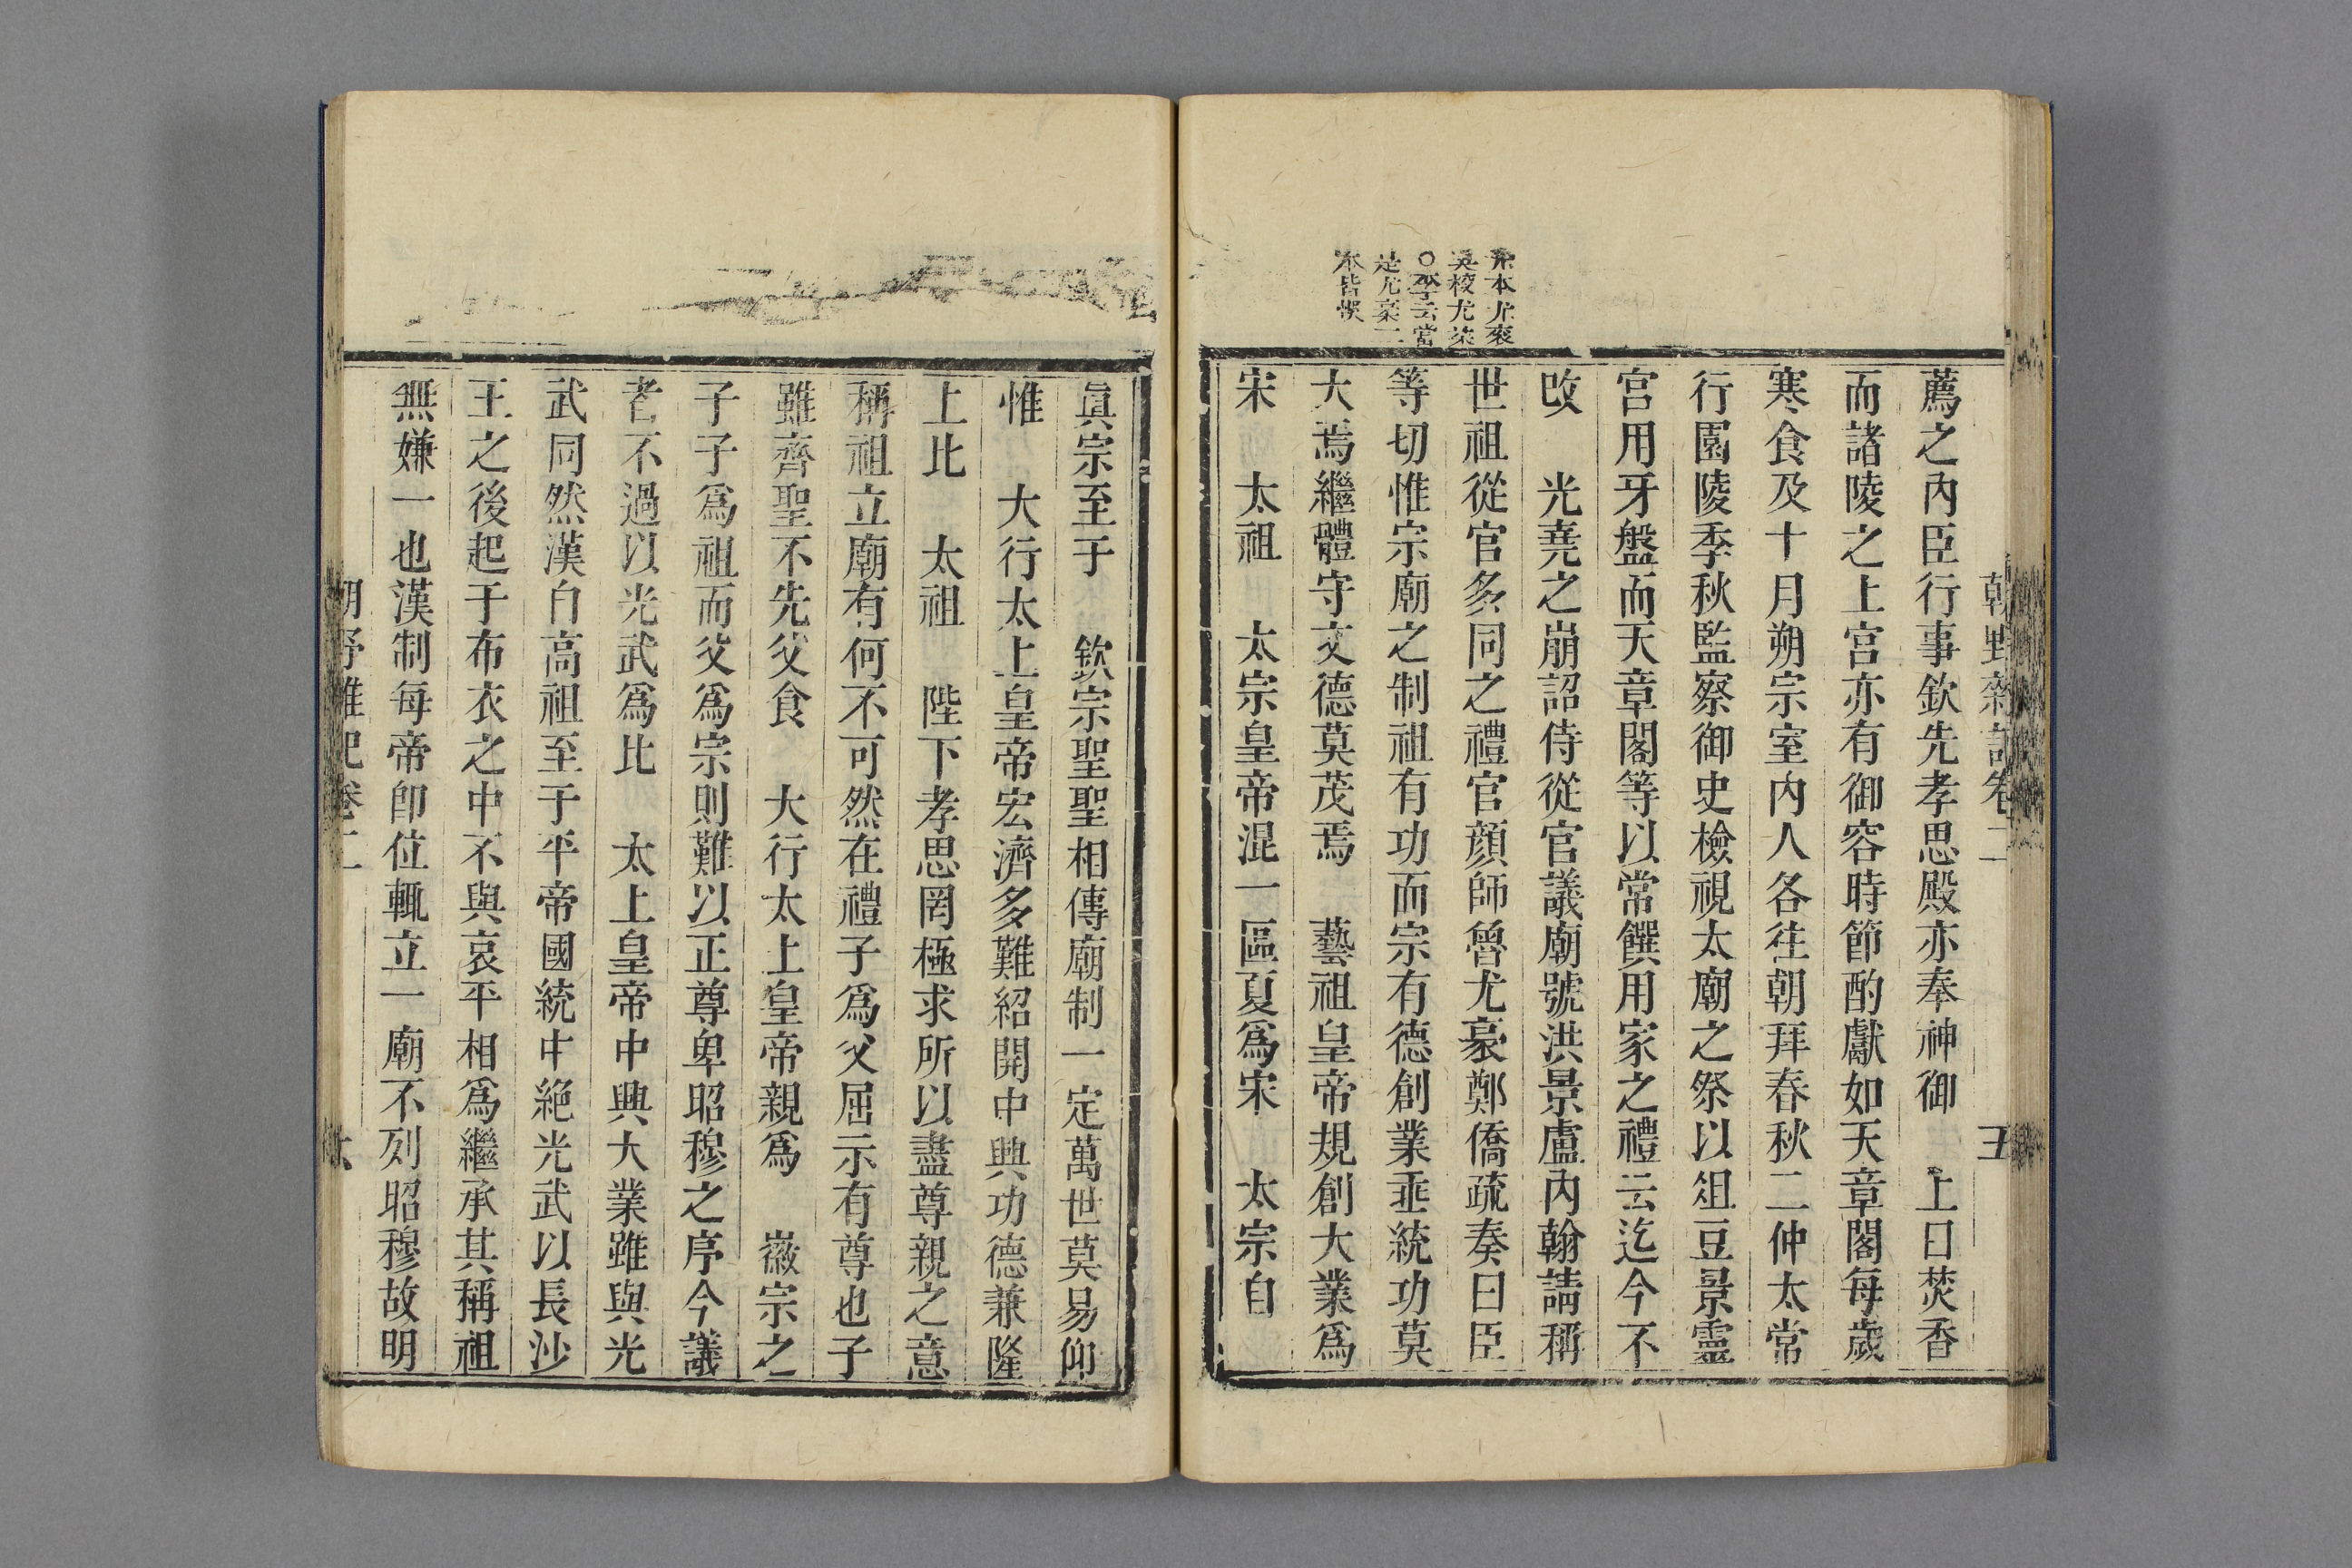 朝野雜記卷二 五
薦之內臣行事欽先孝思殿亦奉神御　上日焚香
而諸陵之上宮亦有御容時節酌獻如天章閣每歲
寒食及十月朔宗室內人各往朝拜春秋二仲太常
行園陵季秋監察御史檢視太廟之祭以俎豆景靈
宮用牙盤而天章閣等以常饌用家之禮云迄今不
改　光堯之崩詔侍從官議廟號洪景盧內翰請稱
世祖從官多同之禮官顏師魯尤豪鄭僑疏奏曰臣
等切惟宗廟之制祖有功而宗有德創業垂統功莫
大焉繼體守文德莫茂焉　藝祖皇帝規創大業為
宋　太祖　太宗皇帝混一區夏爲宋　太宗自
本尤袤
吳校尤柒
〇李云當
是尤袤二
本皆悞
眞宗至于　欽宗聖聖相傳廟制一定萬世莫易仰
惟　大行太上皇帝宏濟多難紹開中興功德兼隆
上比　太祖　陛下孝思罔極求所以盡尊親之意
稱祖立廟有何不可然在禮子爲父屈示有尊也子
雖齊聖不先父食　大行太上皇帝親爲　徽宗之
子子爲祖而父爲宗則難以正尊卑昭穆之序今議
者不過以光武爲比　太上皇帝中興大業雖與光
武同然漢自高祖至于平帝國統中絕光武以長沙
王之後起于布衣之中不與哀平相爲繼承其稱祖
無嫌一也漢制每帝卽位輒立一廟不列昭穆故明
朝野雜記卷二 六